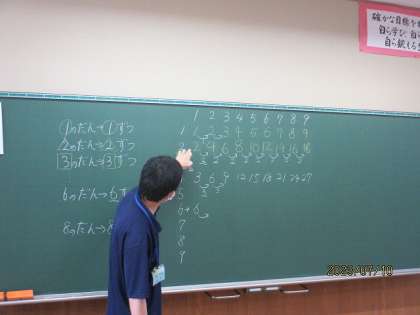 確かな目標を
自ら学び、自
自ら鍛える
1 2 3 4 5 6 7 8 9
①のだん→①ずつ
1 1 2 3 4 5 6 7 8 9
2のだん→2ずつ
2 4 6 8 10 12 14 16 18
3のだん→3ずつ
3 6 9 12 15 18 21 24 27
6のだん→6ず
6+6
8のだん→8
7
8
9
2023/07/19